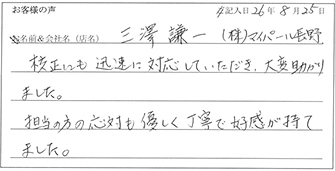 お客様の声
記入日 26年 8月 25日
お名前&会社名(店名) 三澤謙一 (株)マイパール長野
校正にも迅速に対応していただき、大変助かり
ました。
担当の方の応対も優しく丁寧で好感が持て
ました。